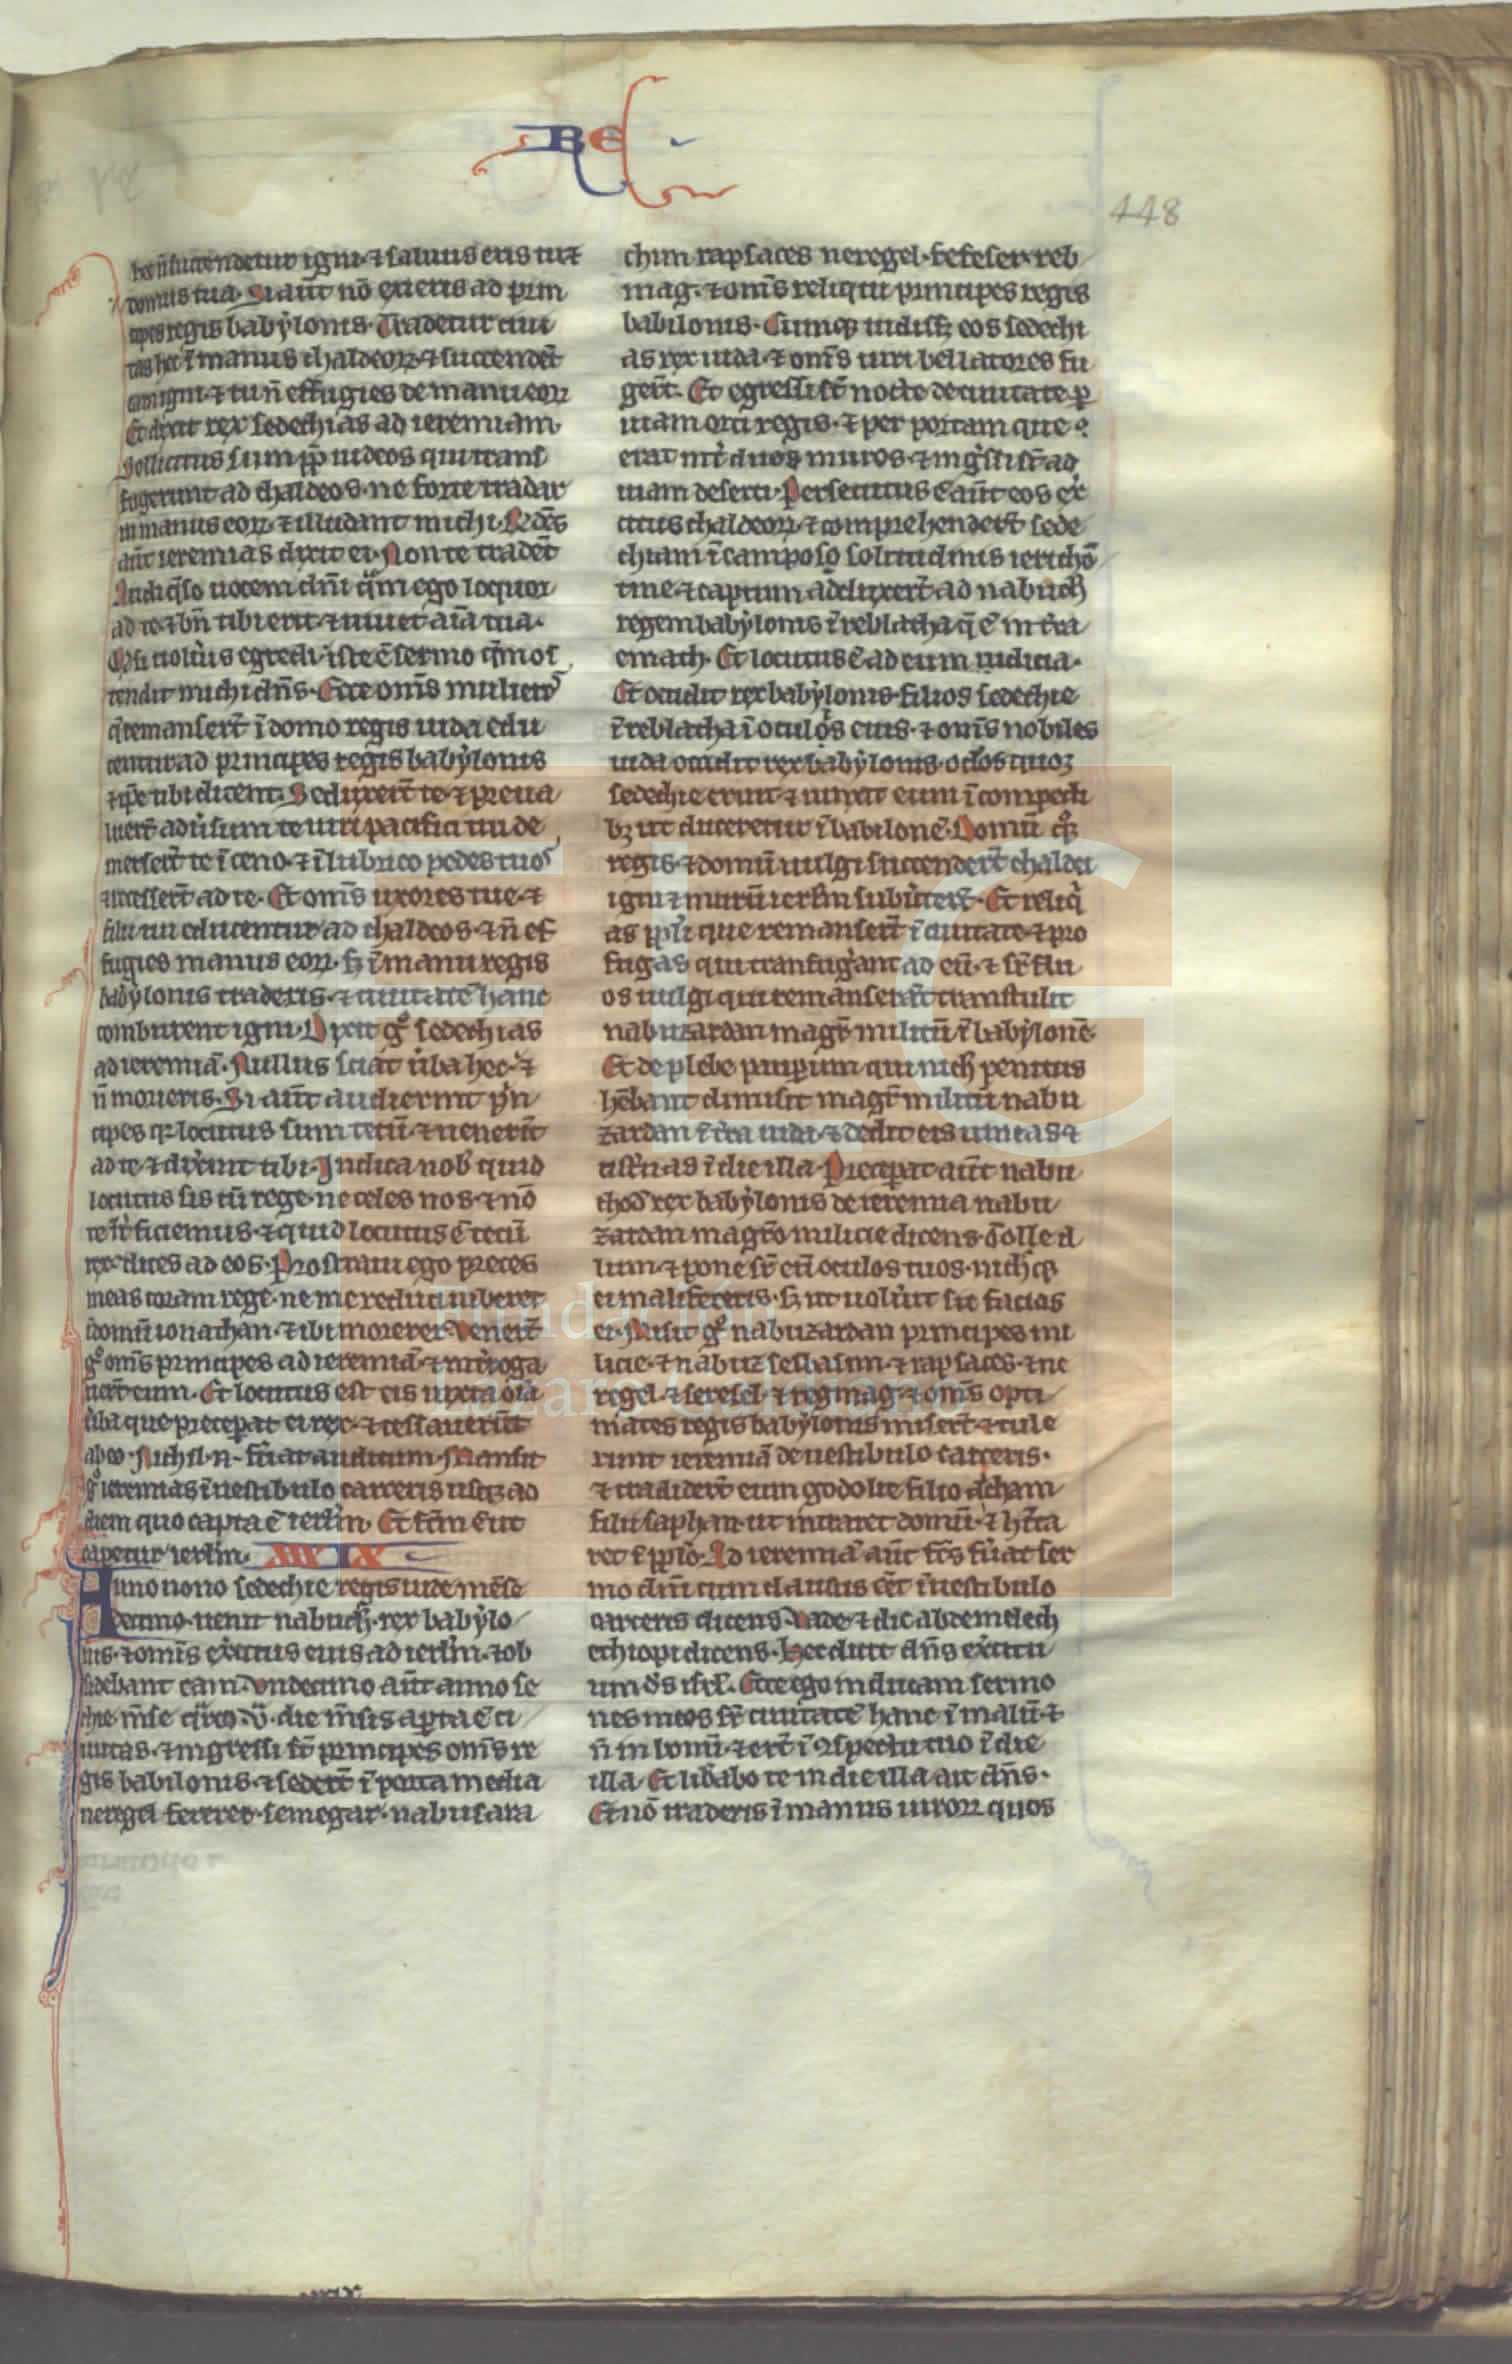 RE
448
hec ñ succendetur igni ⁊ saluus eris tu ⁊
domus tua. Si aut̄ nō exieris ad prin
cipes regis babẏlonis. Tradetur ciui
tas hec ī manus chaldeoꝝ ⁊ succendēt
eam igni ⁊ tu ñ effugies de manu eoꝝ
Et dixit rex sedechias ad ieremiam
Sollicitus sum ꝓp̄ iudeos qui trans
fugerunt ad chaldeos. ne forte tradar
in manus eoꝝ ⁊ illudant michi. Rn̄des
aut̄ ieremias dixit ei. Non te tradēt
Audi q̄so uocem dn̄i q̄m ego loquor
ad te ⁊ bn̄ tibi erit ⁊ uiuet aīa tua.
Qͥ si nolueris egredi iste ē sermo q̄m os
tendit michi dn̄s. Ecce om̄s mulieres
q̄ remanserūt ī domo regis iuda edu
centur ad principes regis babẏlonis
⁊ ip̄e tibi dicent. Seduxert̄ te ⁊ preua
luert̄ aduersum te uiri pacifici tui de
mersert̄ te ī ceno ⁊ ī lubrico pedes tuos
⁊ recessert̄ ad te. Et om̄s uxores tue ⁊
filii tui educentur ad chaldeos ⁊ ñ ef
fugies manus eoꝝ. sꝫ ī manu regis
babẏlonis traderis. ⁊ ciuitatē hanc
comburent igni. Dixit gͦ sedechias
ad ieremiā. Nullus sciat uerba hec. ⁊
ñ morieris. Si aut̄ audierint prin
cipes qꝛ locutus sum tecū ⁊ uenerint
ad te ⁊ dixerint tibi. Indica nob̄ quid
locutus sis cū rege. ne celes nos ⁊ nō
te īterficiemus. ⁊ quid locutus ē tecū
rex. dices ad eos. Prostraui ego preces
meas coram rege. ne me reduci iuberet
ī domū ionathan ⁊ ibi morerer. Venert̄
gͦ om̄s principes ad ieremiā. ⁊ interroga
uert̄ eum. Et locutus est eis iuxta oīa
uerba que preceperat ei rex. ⁊ cessauerūt
ab eo. Nichil. n̄. fuerat auditum. Mansit
gͦ ieremias ī uestibulo carceris usqꝫ ad
diem quo capta ē ierlm̄. Et fc̄m ē ut
caperetur ierlm̄. XXXIX
Anno nono sedechie regis iude mēse
decimo. uenit nabuch̄. rex babẏlo
nis. ⁊ om̄is exercitus eius ad ierlm̄. ⁊ ob
sidebant eam. Undecimo aut̄ anno se
chie m̄se q̄rto. v̄. die m̄sis aperta ē ci
uitas. ⁊ ingressi st̄ principes om̄s re
gis babilonis. ⁊ sedert̄ ī porta media
neregel sereser. semegar. nabusara
chim rapsaces neregel. sereser. reb
mag. ⁊ om̄s reliqui principes regis
babilonis. Cumqꝫ uidissꝫ eos sedechi
as rex iuda ⁊ om̄s uiri bellatores fu
gert̄. Et egressi st̄ nocte de ciuitate ꝑ
uiam orti regis. ⁊ per portam que
erat inter duos muros. ⁊ ingressi st̄ ad
uiam deserti. Persecutus ē aut̄ eos exer
citus chaldeoꝝ. ⁊ comprehendert̄ sede
chiam ī campo so solitudinis iericho
tine. ⁊ captum adduxert̄ ad nabuch̄
regem babẏlonis ī reblatha q̄ ē in terra
emath. Et locutus ē ad eum iudicia.
Et occidit rex babẏlonis filios sedechie
ī reblatha ī oculos eius. ⁊ om̄s nobiles
iuda occidit rex babẏlonis. oc̄los quoꝫ
sedechie eruit. ⁊ uinxit eum ī compedi
bꝫ ut duceretur ī babilonē. Domū qͦꝫ
regis. ⁊ domū uulgi succendert̄ chaldei
igni ⁊ murū ierlm̄ subuertert̄. Et reliqi
as ppl̄i que remansert̄ ī ciuitate. ⁊ pro
fugas qui tranfugerant ad eū. ⁊ sr̄ flu
os uulgi qui remanserant transtulit
nabuzardan magr̄ militū ī babẏlonē.
Et de plebe pauperum qui nich̄ penitus
hēbant dimisit magr̄ militū nabu
zardan ī terra iuda. ⁊ dedit eis uineas ⁊
cisternas ī die illa. Preceperat aut̄ nabu
chod̄ rex babẏlonis de ieremia nabu
zardan magr̄o milicie dicens. Tolle il
lum. ⁊ pone sr̄ eū oculos tuos. nichqꝫ
ei mali feceris. sꝫ ut uoluerit sic facias
ei. Misit gͦ nabuzardan principes mi
licie. ⁊ nabuz sesbasim. ⁊ rapsaces. ⁊ ne
regel. ⁊ seresel. ⁊ regmag. ⁊ om̄s opti
mates regis babẏlonis misert̄. ⁊ tule
runt ieremiā de uestibulo carceris.
⁊ tradidert̄ eum godolie filio aicham
filii saphan. ut intraret domū. ⁊ hīta
ret ī ppl̄o. Ad ieremiā aut̄ fc̄s fuerat ser
mo dn̄i cum clausus cēt ī uestibulo
carceris dicens. Vade. ⁊ dic abdemelech
ethiopi dicens. Hec dicit dn̄s exercitu
um ds̄ isrl̄. Ecce ego inducam sermo
nes meos sr̄ ciuitatē hanc ī malū. ⁊
ñ in bonū. ⁊ ert̄ ī ꝯspectu tuo ī die
illa. Et liberabo te in die illa ait dn̄s.
Et nō traderis ī manus uiroꝝ quos
FLG
Fundación
Lázaro Galdiano